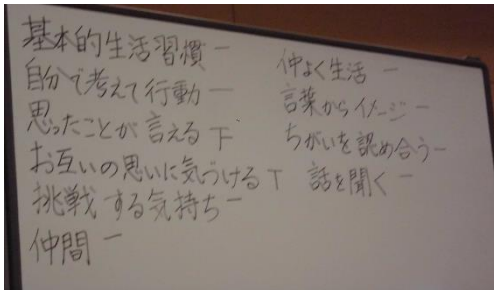 基本的生活習慣 一
自分で考えて行動 一
思ったことが言える 下
お互いの思いに気づける T
挑戦する気持ち 一
仲間 一
仲よく生活 一
言葉からイメージ 一
ちがいを認め合う 一
話を聞く 一